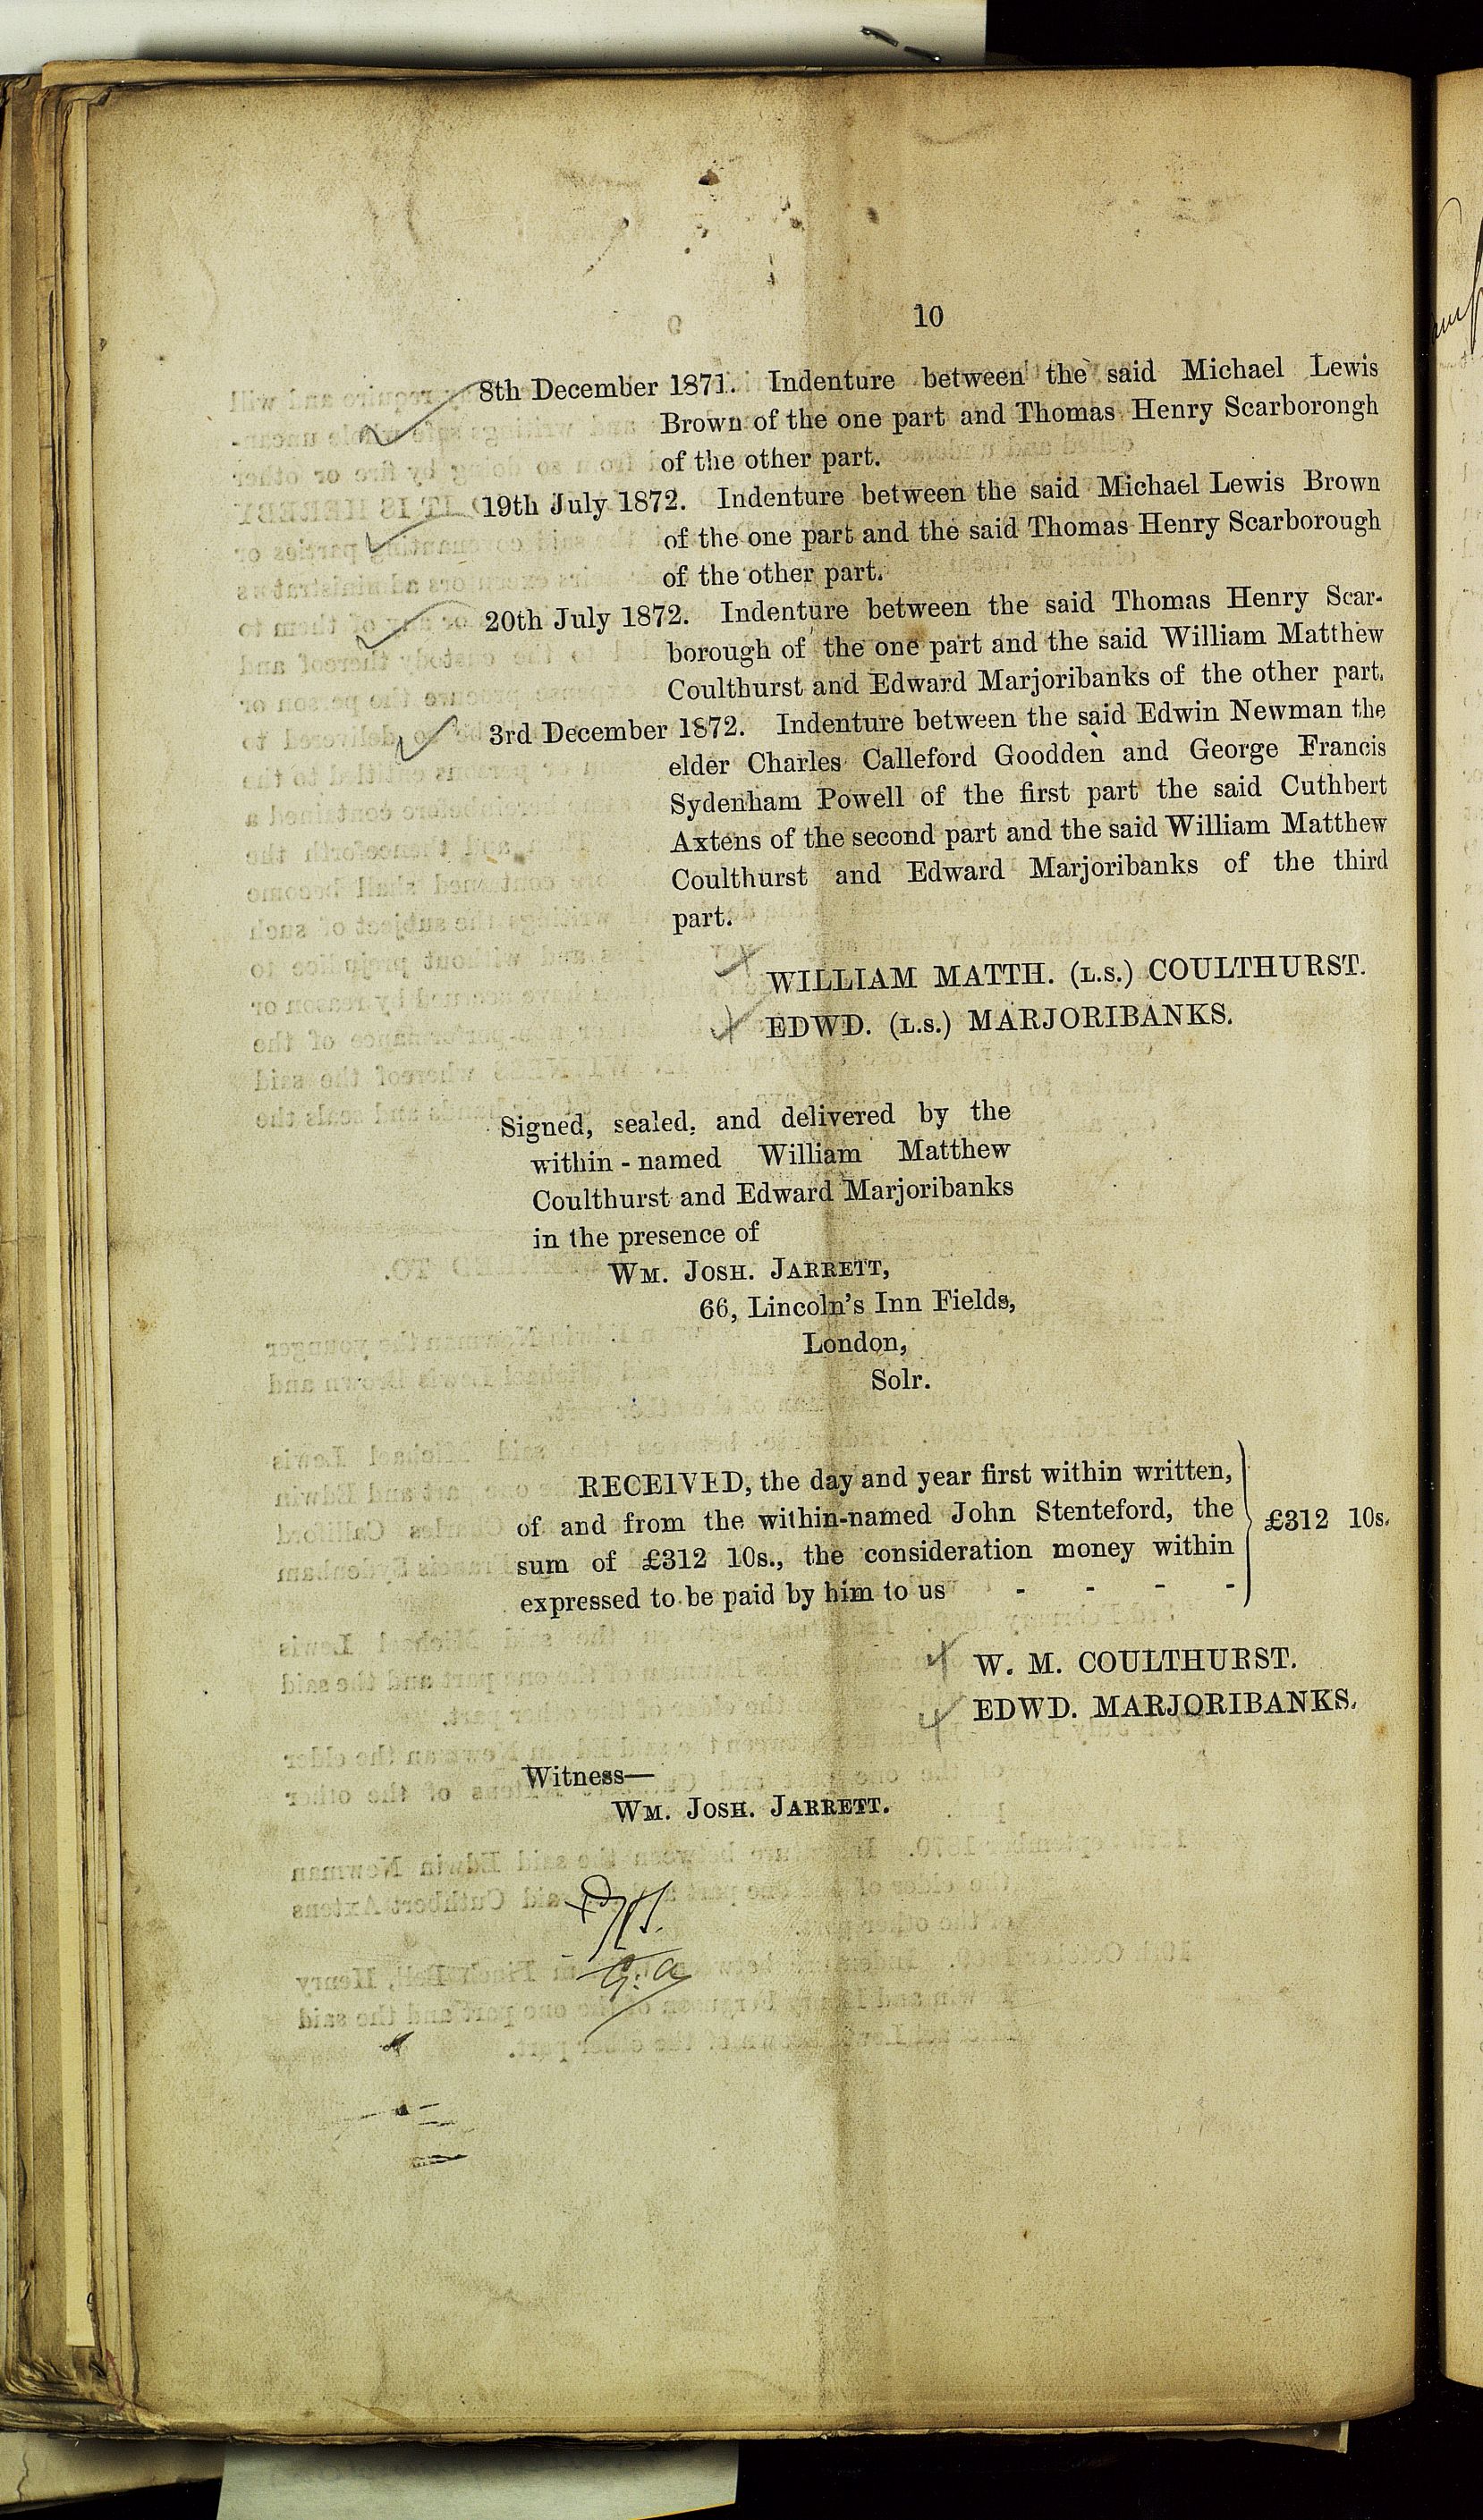 10
8th December 1871. Indenture between the said Michael Lewis
Brown of the one part and Thomas Henry Scarborongh
of the other part.
19th July 1872. Indenture between the said Michael Lewis Brown
of the one part and the said Thomas Henry Scarborough
of the other part.
20th July 1872. Indenture between the said Thomas Henry Scar-
borough of the one part and the said William Matthew
Coulthurst and Edward Marjoribanks of the other part.
3rd December 1872. Indenture between the said Edwin Newman the
elder Charles Calleford Goodden and George Francis
Sydenham Powell of the first part the said Cuthbert
Axtens of the second part and the said William Matthew
Coulthurst and Edward Marjoribanks of the third
part.
WILLIAM MATTH. (L.S.) COULTHURST.
EDWD. (L.S.) MARJORIBANKS.
Signed, sealed, and delivered by the
within-named William Matthew
Coulthurst and Edward Marjoribanks
in the presence of
WM. JOSH. JARRETT,
66, Lincoln's Inn Fields,
London,
Solr.
RECEIVED, the day and year first within written,
of and from the within-named John Stenteford, the
sum of £312 10s., the consideration money within
expressed to be paid by him to us - - - -
£312 10s.
W. M. COULTHURST.
EDWD. MARJORIBANKS.
Witness—
WM. JOSH. JARRETT.